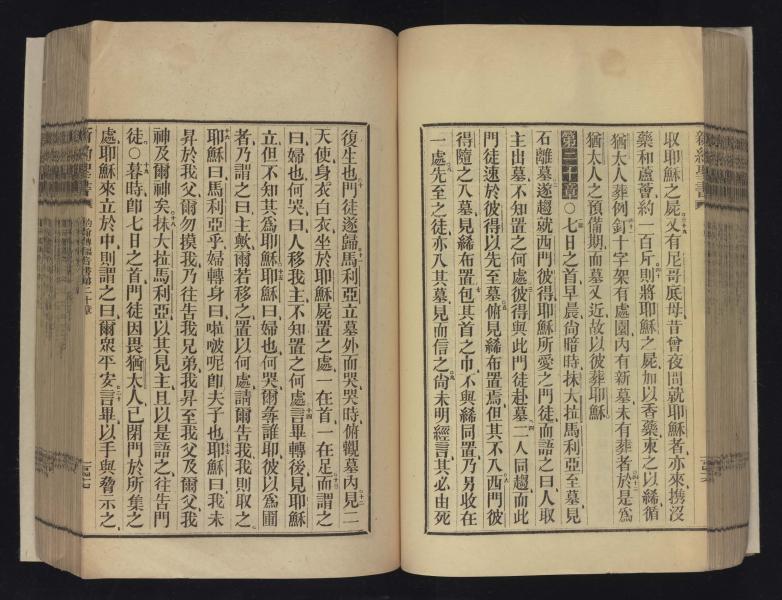 新約聖書
取耶穌之屍又有尼哥底母昔曾夜間就耶穌者亦來携沒
藥和蘆薈約一百斤則將耶穌之屍加以香藥束之以絺循
猶太人葬例釘十字架有處園內有新墓未有葬者於是爲
猶太人之預備期而墓又近故以彼葬耶穌
第二十章○七日之首早晨尙暗時抹大拉馬利亞至墓見
石離墓遂趨就西門彼得耶穌所愛之門徒而語之曰人取
主出墓不知置之何處彼得與此門徒赴墓二人同趨而此
門徒速於彼得以先至墓俯見絺布置焉但其不入西門彼
得隨之入墓見絺布置包其首之巾不與絺同置乃另收在
一處先至之徒亦入其墓見而信之尙未明經言其必由死
復生也門徒遂歸馬利亞立墓外而哭哭時俯觀墓內見二
天使身衣白衣坐於耶穌屍置之處一在首一在足而謂之
曰婦也何哭曰人移我主不知置之何處言畢轉後見耶穌
立但不知其爲耶穌耶穌曰婦也何哭爾尋誰耶彼以爲園
者乃謂之曰主歟爾若移之置以何處請爾吿我我則取之
耶穌曰馬利亞乎婦轉身曰啦啵呢卽夫子也耶穌曰我未
昇於我父爾勿摸我乃往吿我兄弟我昇至我父及爾父我
神及爾神矣抹大拉馬利亞以其見主且以是語之往吿門
徒○暮時卽七日之首門徒因畏猶太人已閉門於所集之
處耶穌來立於中則謂之曰爾眾平安言畢以手與脅示之
新約聖書
約翰傳福音書第二十章